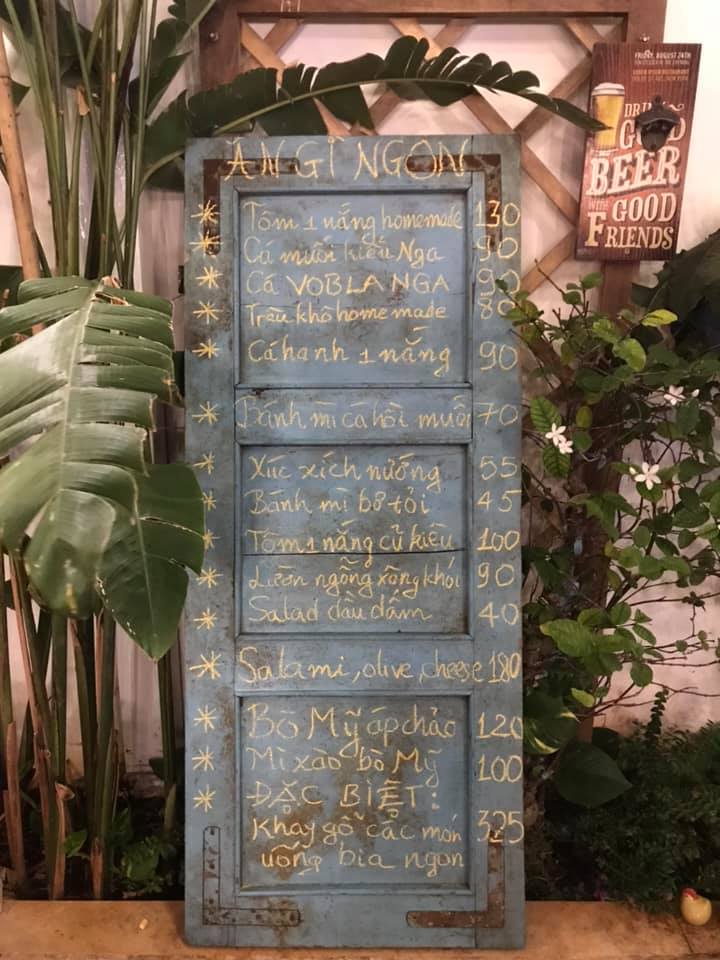 ĂN GÌ NGON
* Tôm 1 nắng homemade 130
* Cá muối kiểu Nga 90
* Cá VOBLA NGA 90
* Trâu khô homemade 80
* Cá hanh 1 nắng 90
* Bánh mì cá hồi muối 70
* Xúc xích nướng 55
* Bánh mì bơ tỏi 45
* Tôm 1 nắng củ kiệu 100
* Lườn ngỗng xông khói 90
* Salad dầu dấm 40
* Salami, olive, cheese 180
* Bò Mỹ áp chảo 120
* Mì xào bò Mỹ 100
* ĐẶC BIỆT:
Khay gỗ các món 325
uống bia ngon
FRIDAY, AUGUST 24TH
DRINK
GOOD
BEER
WITH GOOD
FRIENDS